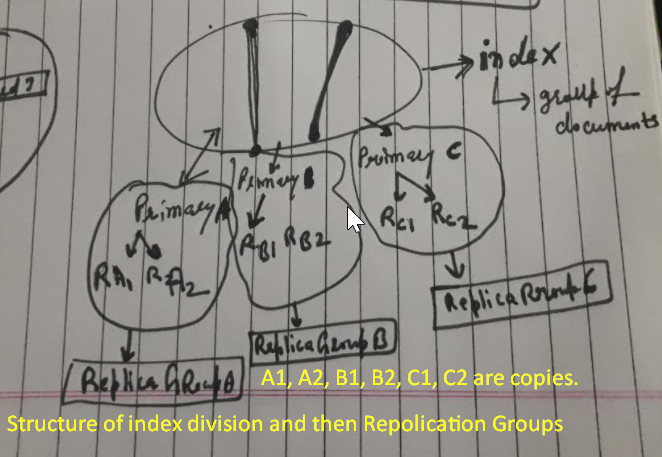 index
group of
documents
Primary A
RA1 RA2
Primary B
RB1 RB2
Primary C
RC1 RC2
Replica Group A
Replica Group B
A1, A2, B1, B2, C1, C2 are copies.
Structure of index division and then Repolication Groups